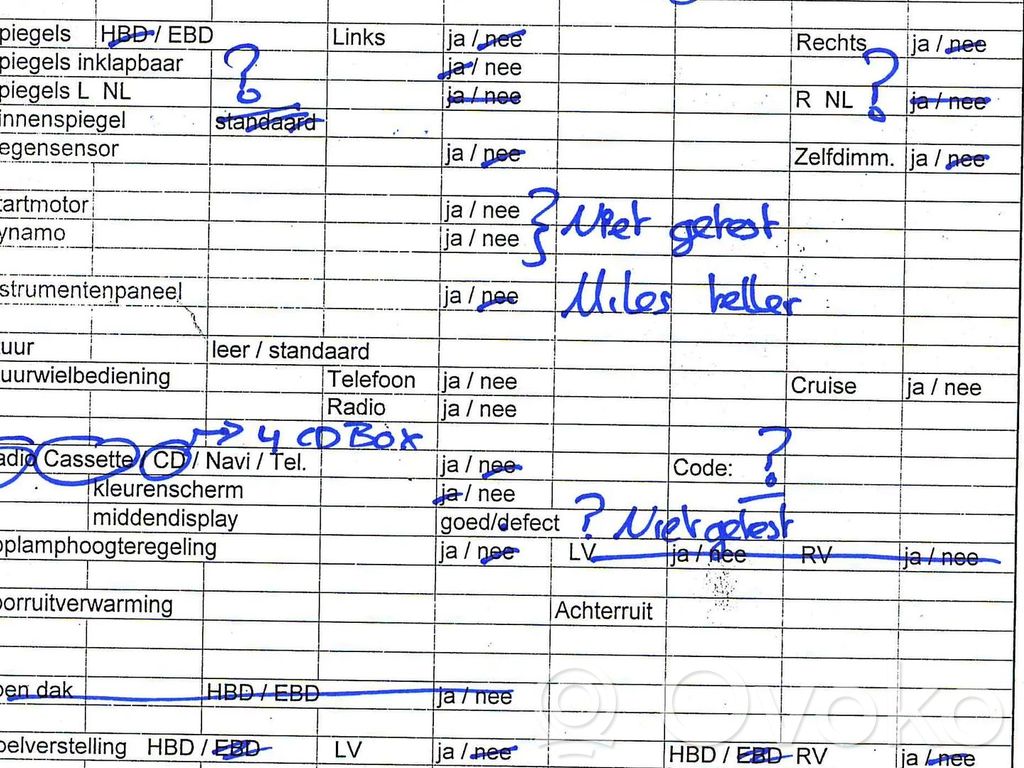 piegels HBD / EBD Links ja / nee Rechts ja / nee
piegels inklapbaar ? ja / nee ?
piegels L NL ja / nee R NL ja / nee
innenspiegel standaard
egensensor ja / nee Zelfdimm. ja / nee
tartmotor ja / nee } Niet getest
ynamo ja / nee
strumentenpaneel ja / nee Miles teller
uur leer / standaard
uurwielbediening Telefoon ja / nee Cruise ja / nee
Radio ja / nee
→ 4 CD Box
adio Cassette / CD / Navi / Tel. ja / nee Code: ?
kleurenscherm ja / nee
middendisplay goed/defect ? Niet getest
oplamphoogteregeling ja / nee LV ja / nee RV ja / nee
oorruitverwarming Achterruit
pen dak HBD / EBD ja / nee
oelverstelling HBD / EBD LV ja / nee HBD / EBD RV ja / nee
Ovoko